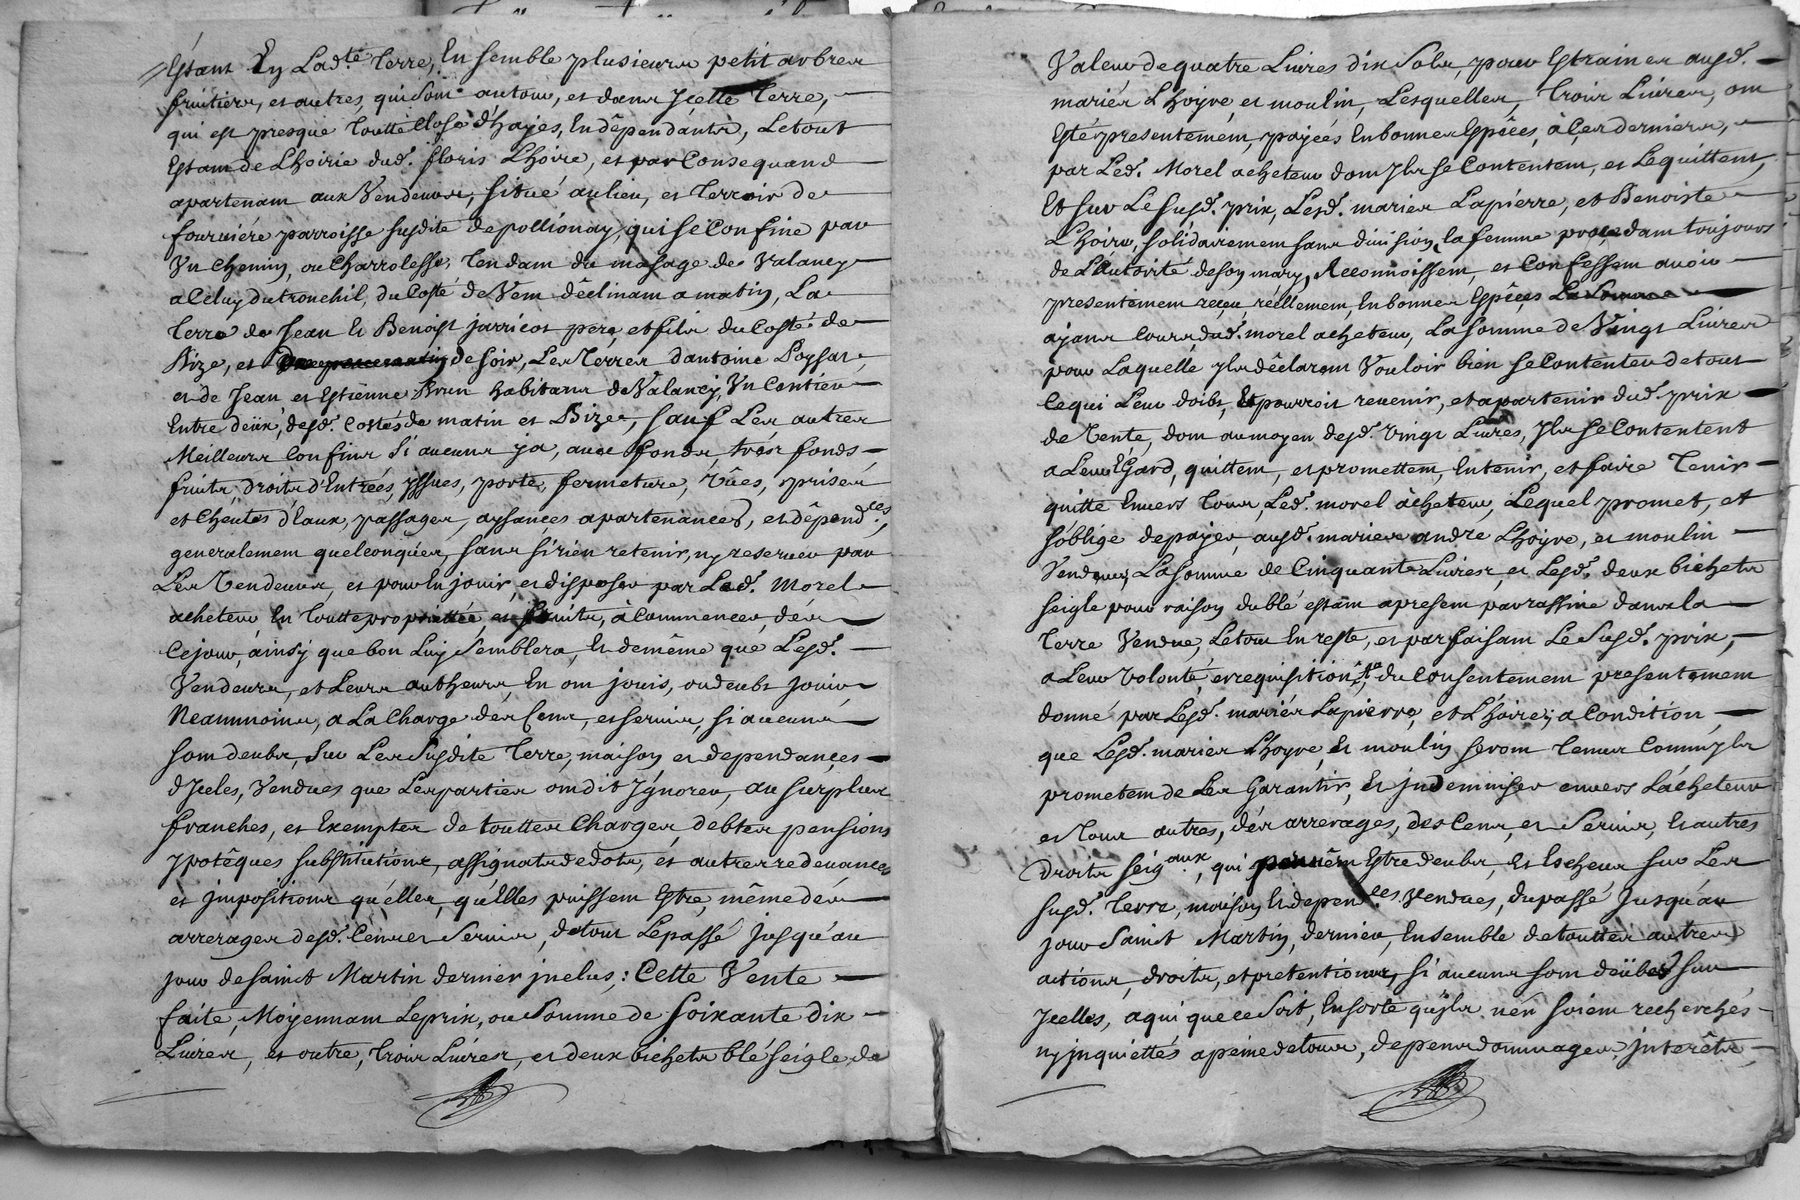 Estant En Lad.te Terre, Ensemble plusieurs petit arbres
fruitiers, et autres, qui Sont autour, et dans Jcelle Terre,
qui est presque Toutte Close d'hayes, En dêpendants, Le tout
Estant de L'hoirie dud.t floris Lhoire, et par Consequand
apartenant aux Vendeurs, situé au lieu, et Terroir de
fourniére parroisse susdite de pollionay, qui se Confine par
Vn Chemin, ou Charrolesse, Tendant du masage de Valancy
a Celuy du tronchil, du Costé de Vent dêclinant a matin, La
Terre de Jean Et Benoist jarricot pere, et fils du Costé de
Bize, et de soir, Les Terres d'antoine Poysat,
et de Jean et Estienne Brun habitans de Valancy, Vn Contien
Entre deüx, desd.t Costés de matin et Bize, sauf Les autres
Meilleurs Confins Si aucuns ja, avec fonds, trés fonds
fruits, droits d'Entrées, yssues, porte, fermeture, Vûes, prises
et Cheutes d'Eaux, passages, aysances apartenances, et dêpend.ces,
generalement quelconques, sans si rien retenir, ny reserver par
Les Vendeurs, et pour En jouir, et disposer par Led.t Morel
acheteur, En Toutte proprietée, et fruits, à Commencer, dés
Ce jour, ainsy que bon Luy Semblera, Et de même que Lesd.t
Vendeurs, et Leurs autheurs En ont jouis, ou deubt jouir,
Neanmoins, a La Charge dés Cens, et servis, si aucuns
sont deubs, Sur Les Susdite Terre, maison, et dependances
d'Jcelles, Vendues que Les parties ont dit Jgnorer, au surplus
franches, et Exemptes de touttes Charges, debtes pensions
ypotêques substitutions, assignats de dots, et autres redevances
et jmpositions qu'elles, qu'Elles puissent Estre, même dés
arrerages desd.t Cens et Servis, de tout Le passé jusqu'au
jour de saint Martin dernier jnclus,: Cette Vente
faite, Moyennant Le prix, ou Somme de soixante dix
Livres, et outre, Trois Livres, et deux bichets blé seigle, de
Valeur de quatre Livres dix Sols, pour Estraines ausd.t
mariés Lhoyre, et moulin, Lesquelles, Trois Livres, ont
Esté presentement, payées En bonnes Espêces, à Ces derniers,
par Led.t Morel acheteur dont yls se Contentent, et Le quittent,
Et sur Le susd.t prix, Lesd.t mariés Lapiérre, et Benoiste
L'hoire, solidairement sans division, la femme procedant toujours
de L'autorité de son mary, Reconnoissent, et Confessent avoir
presentement reçeu, réellement, En bonnes Espêces
ayans Cours, dud.t morel acheteur, La somme de Vingt Livres
pour Laquelle yls dêclarent Vouloir bien se Contenter de tout
Ce qui Leur doibt, Et pourroit revenir, et apartenir dud.t prix
de Vente, dont au moyen desd.t Vingt Livres, yls se Contentent
a Leur Egard, quittent, et promettent, En tenir, et faire Tenir
quitte Envers Tous, Led.t morel acheteur, Lequel promet, et
s'oblige de payer, ausd.t mariés andré Lhoyre, et moulin
Vendeurs, La somme de Cinquante Livres, et Lesd.t deux bichets
seigle pour raison du blé estant a present par rassine dans la
Terre Vendue, Le tout En reste, et parfaisant Le susd.t prix,
a Leur Volonté, et requisition, du Consentement presentement
donné par Lesd.t mariés Lapierre, et Lhoire, a Condition
que Lesd.t mariés Lhoyre, Et moulin seront Tenus Comm'yls
promettent de Les Garantir, Et jndemniser envers L'acheteur
et Tous autres, dés arrerages, des Cens, et Servis, Et autres
Droits Seig.aux, qui peuvent Estre deubs, Et Escheus sur Les
susd.t Terre, maison Et depen.ces Vendues, du passé Jusqu'au
jour Saint Martin, dernier, Ensemble de touttes autres
actions, droits, et pretentions, si aucuns sont deübes sur
Jcelles, a qui que ce Soit, Ensorte qu'yls n'en soient recherchés
ny jnquiettés a peine de tous, depens dommages, jnterêts,